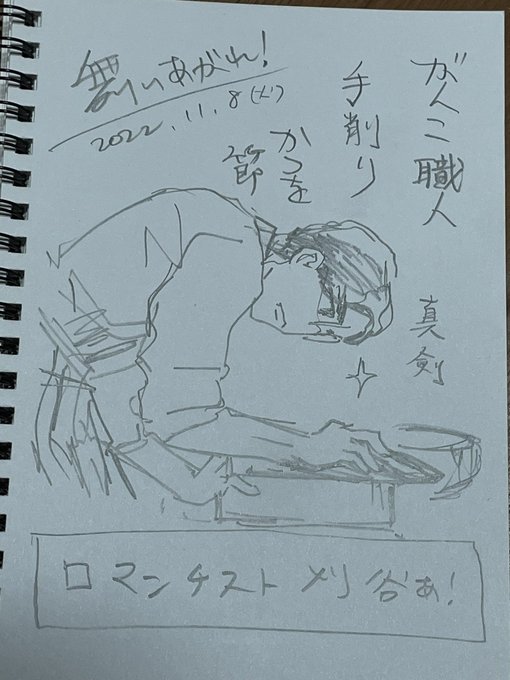 舞いあがれ!
2022.11.8(火)
がんこ職人
手削り
かつを
節
真剣
ロマンチスト刈谷ぁ!